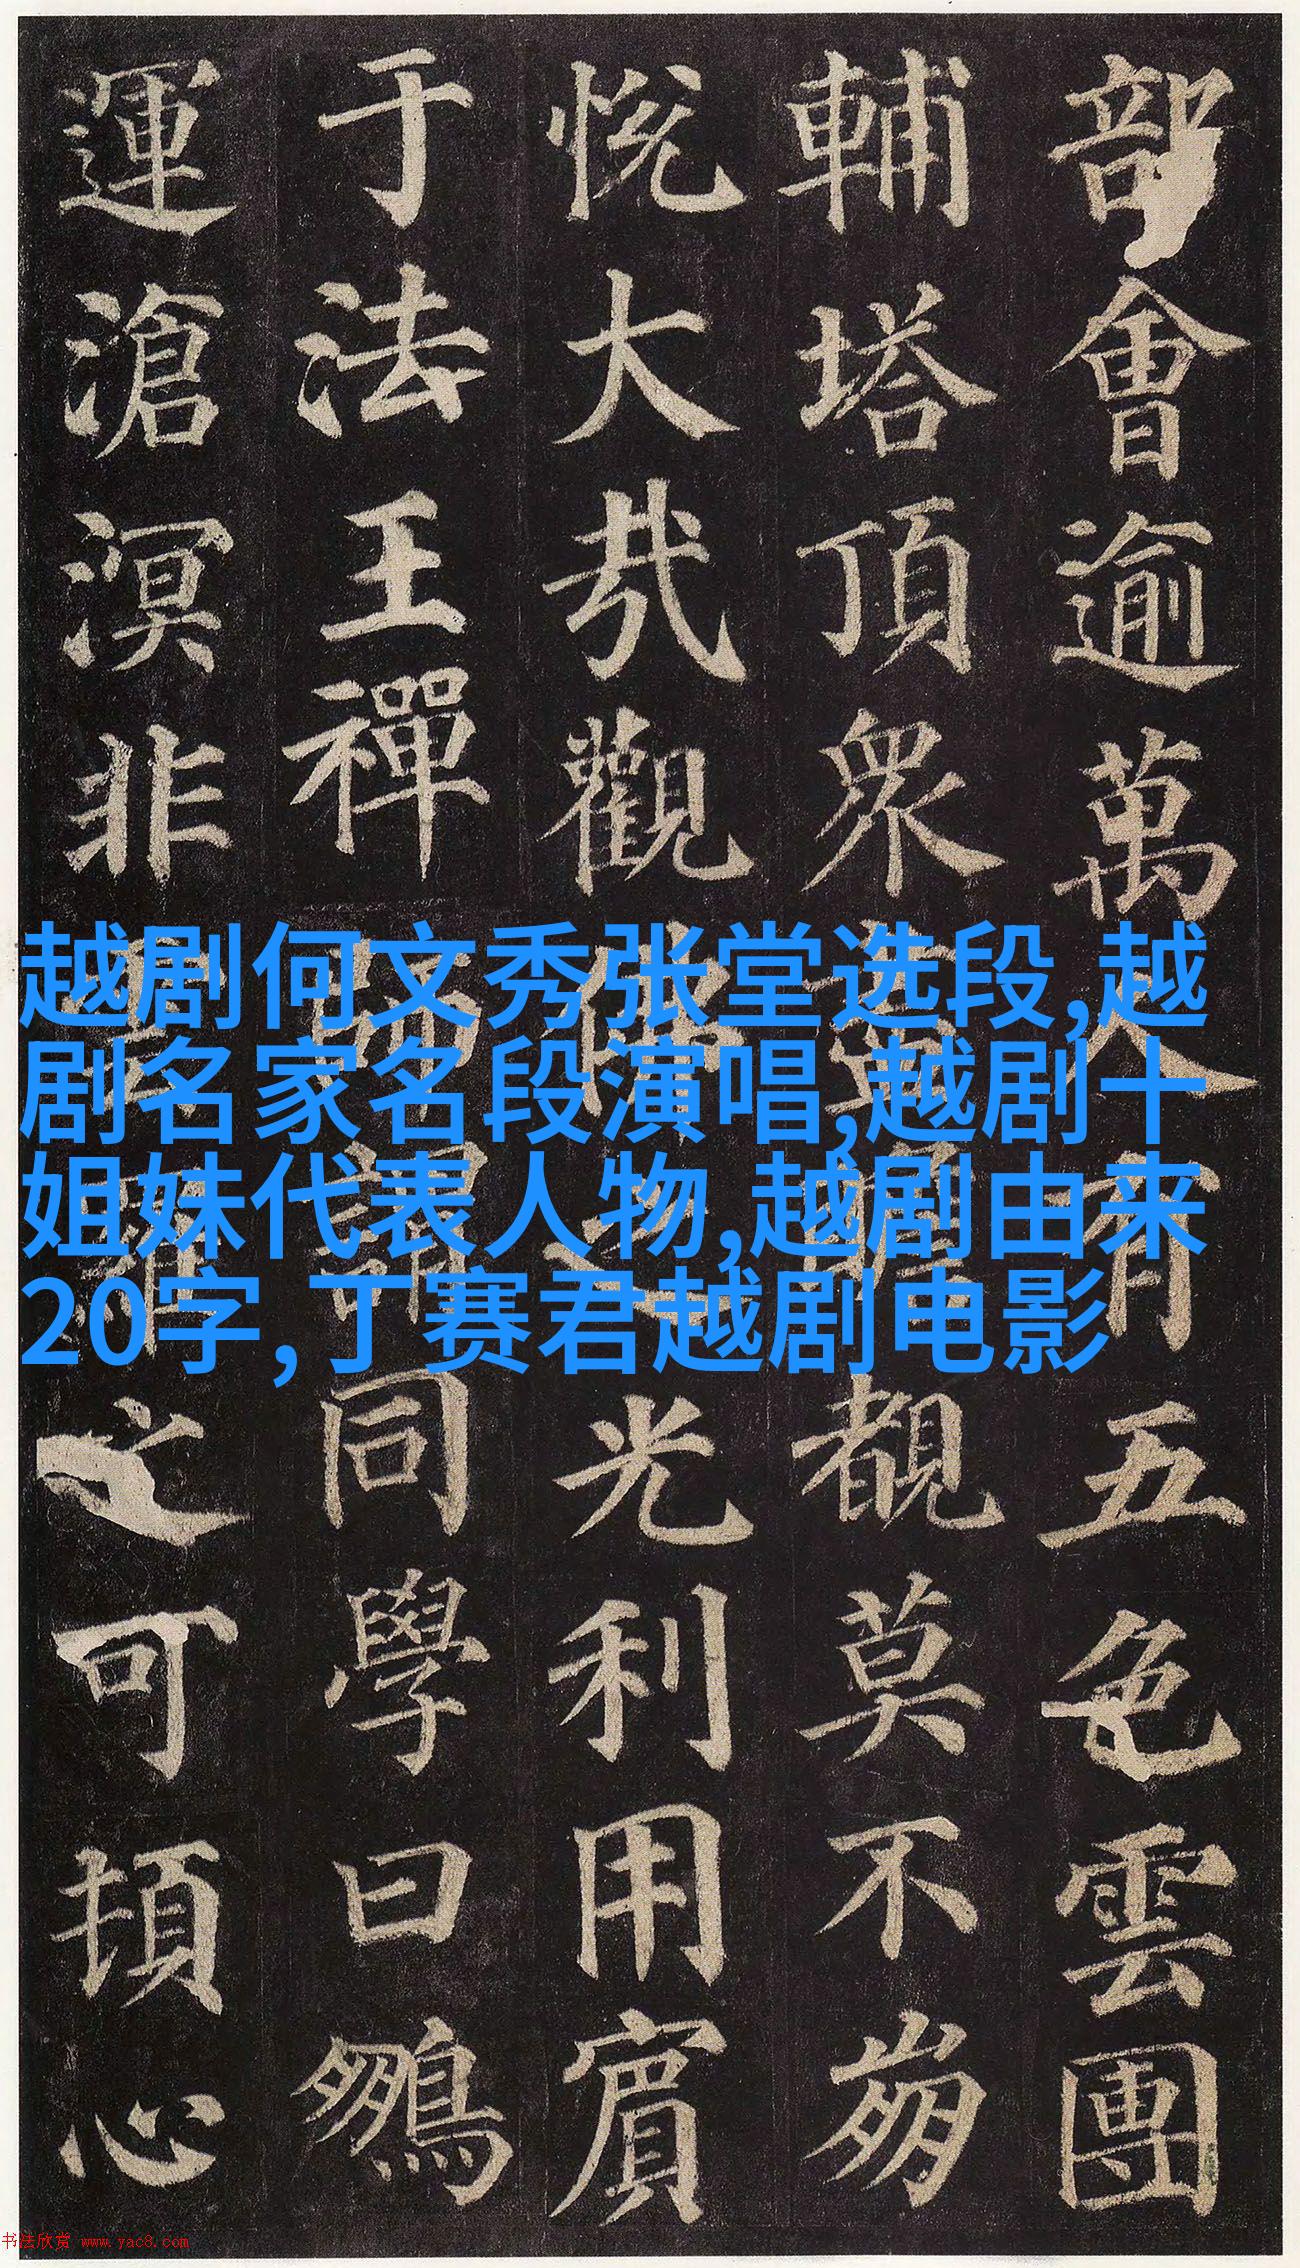 越剧何文秀张堂选段,越
剧名家名段演唱,越剧十
姐妹代表人物,越剧由来
20字,丁赛君越剧电影
部會逾萬人有五色雲團
輔塔頂眾覩莫不崩
悅大哉觀光利用賓
于法王禪同學曰鵬
運滄溟非之可頓心
书法欣赏 www.yac8.com